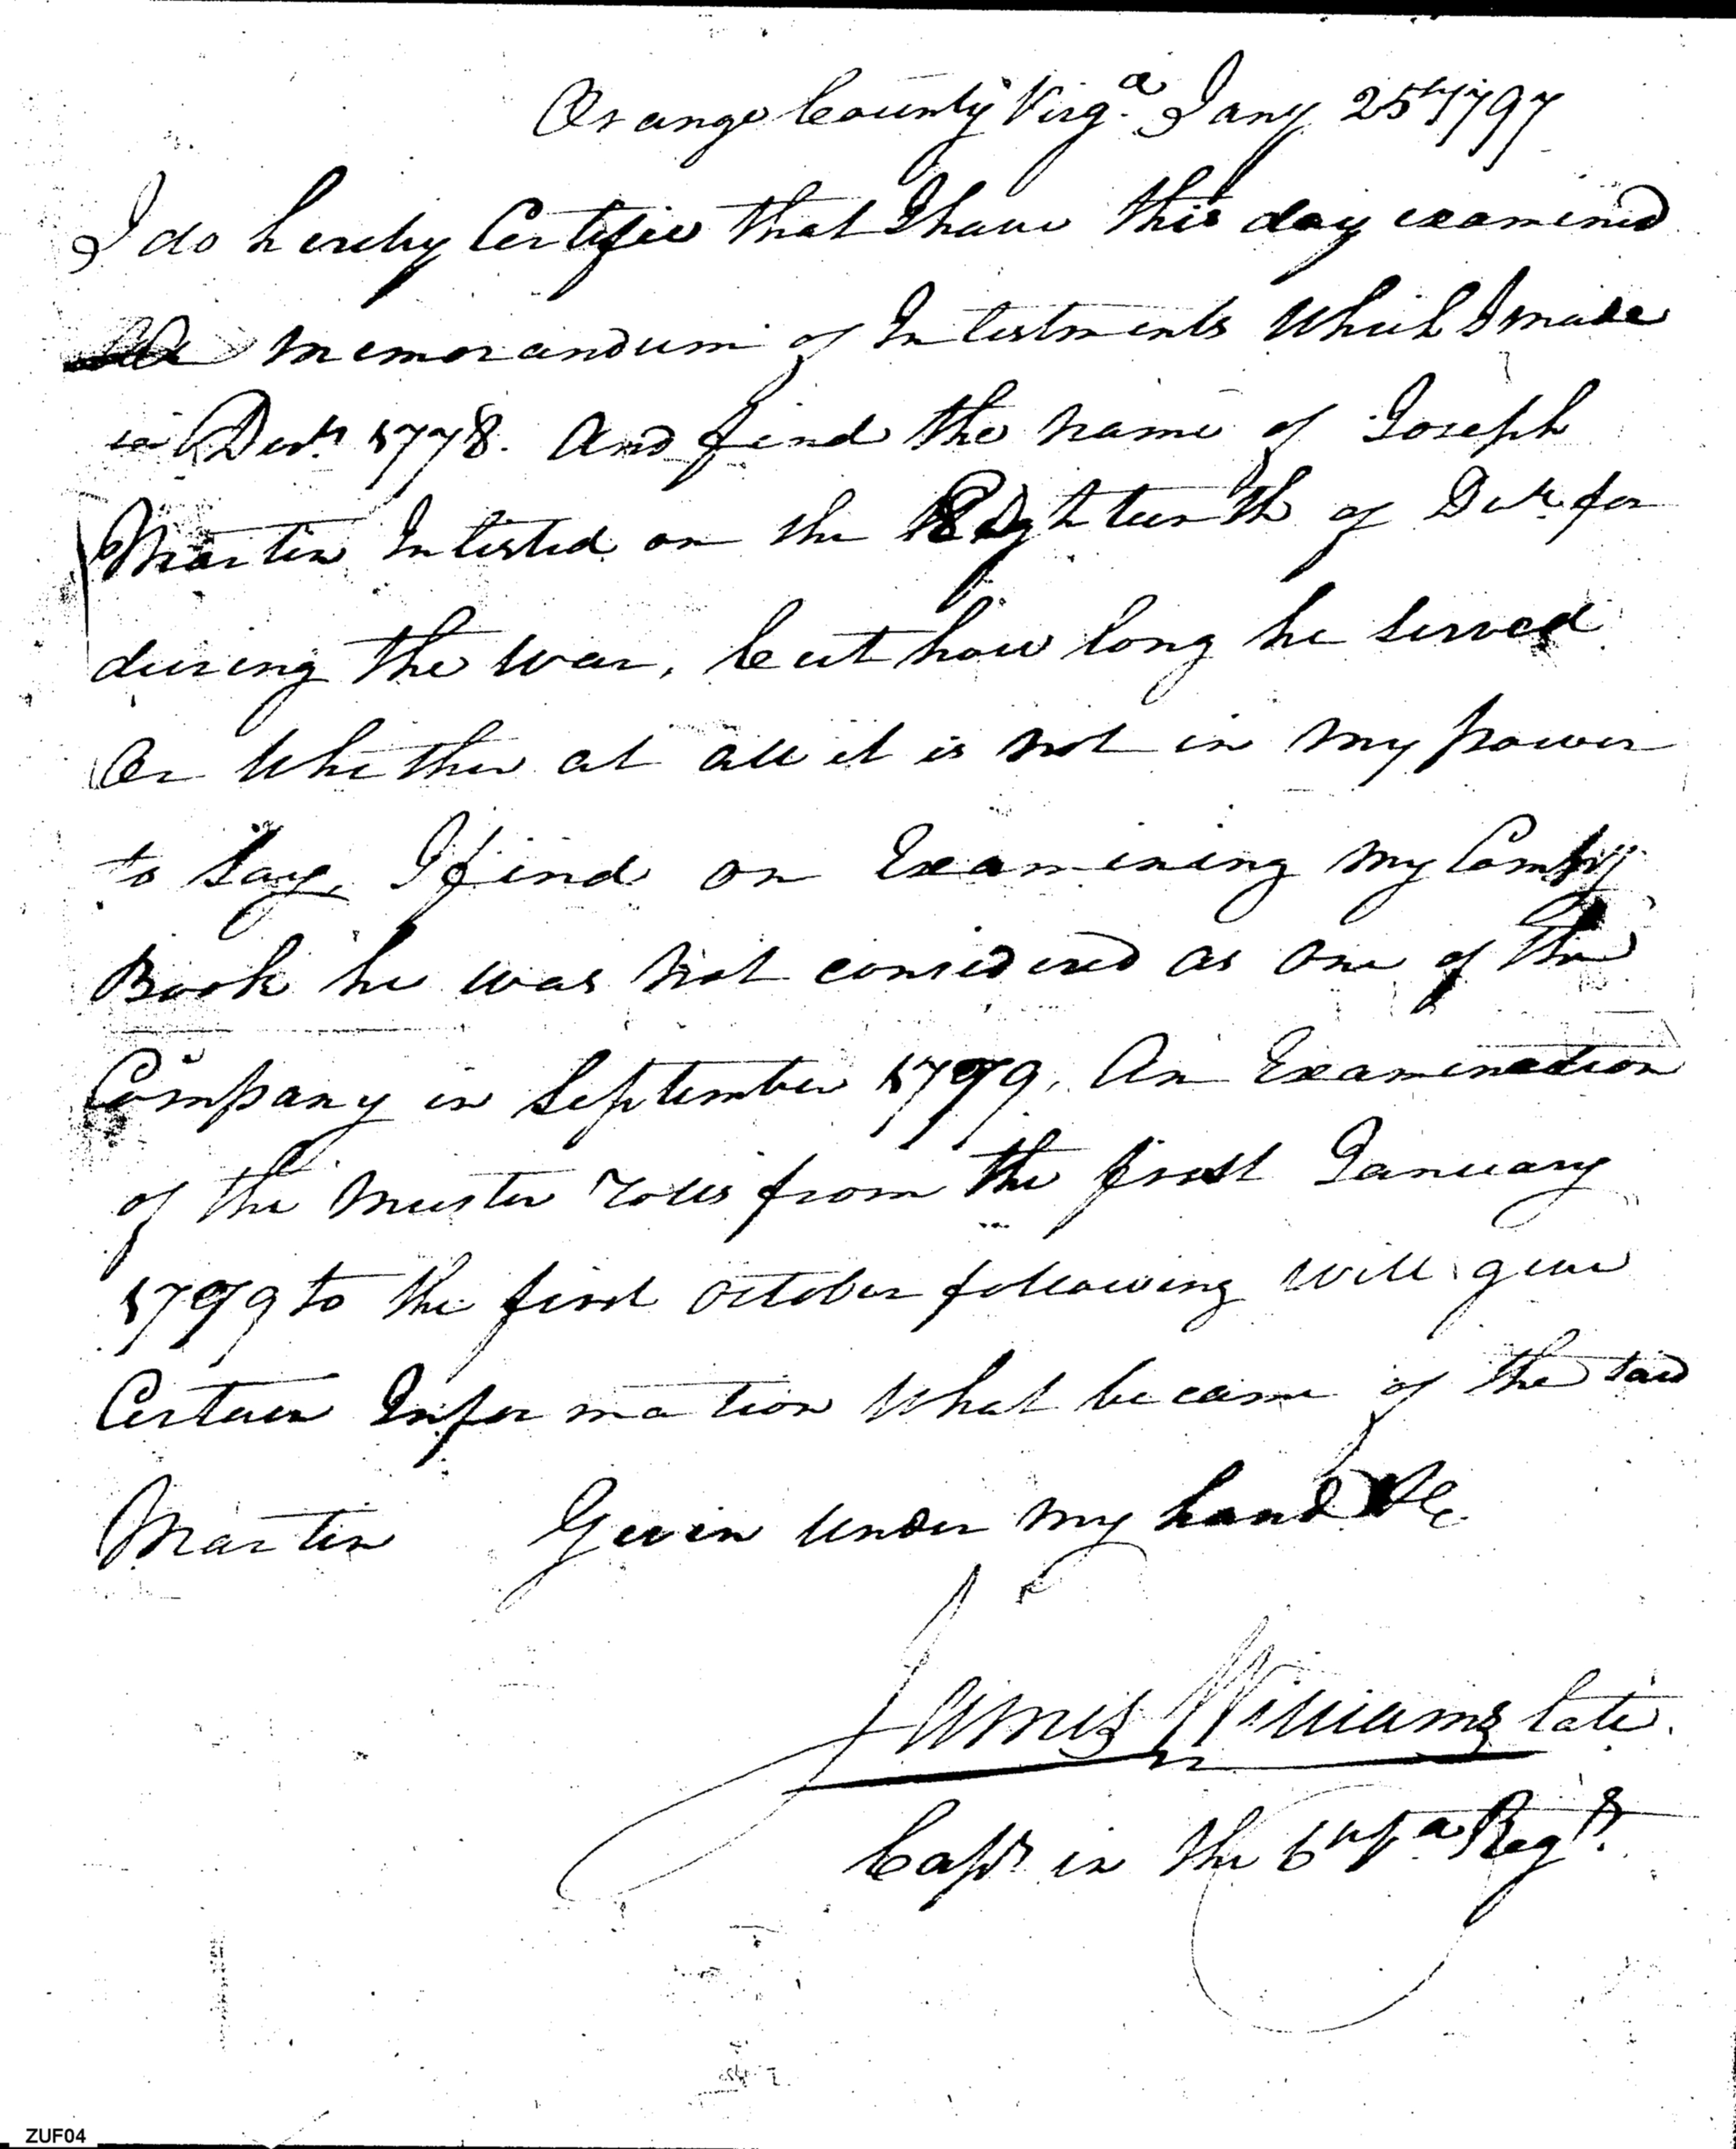 Orange County Virg.a Jany 25th 1797
I do hereby Certifie that I have this day examined
memorandum of Inlistments which I made
in Decr. 1778. And find the name of Joseph
Martin Inlisted on the Eighteenth of Decr. for
during the war, but how long he served
Or whether at all it is not in my power
to Say, I find on Examining my Compy
Book he was not considered as one of the
Company in September 1779. An Examination
of the Muster rolls from the first January
1779 to the first October following will give
Certain Information what became of the said
Martin Given under my hand &c
James Williams late.
Capt. in the 6th Va Regt.
ZUF04